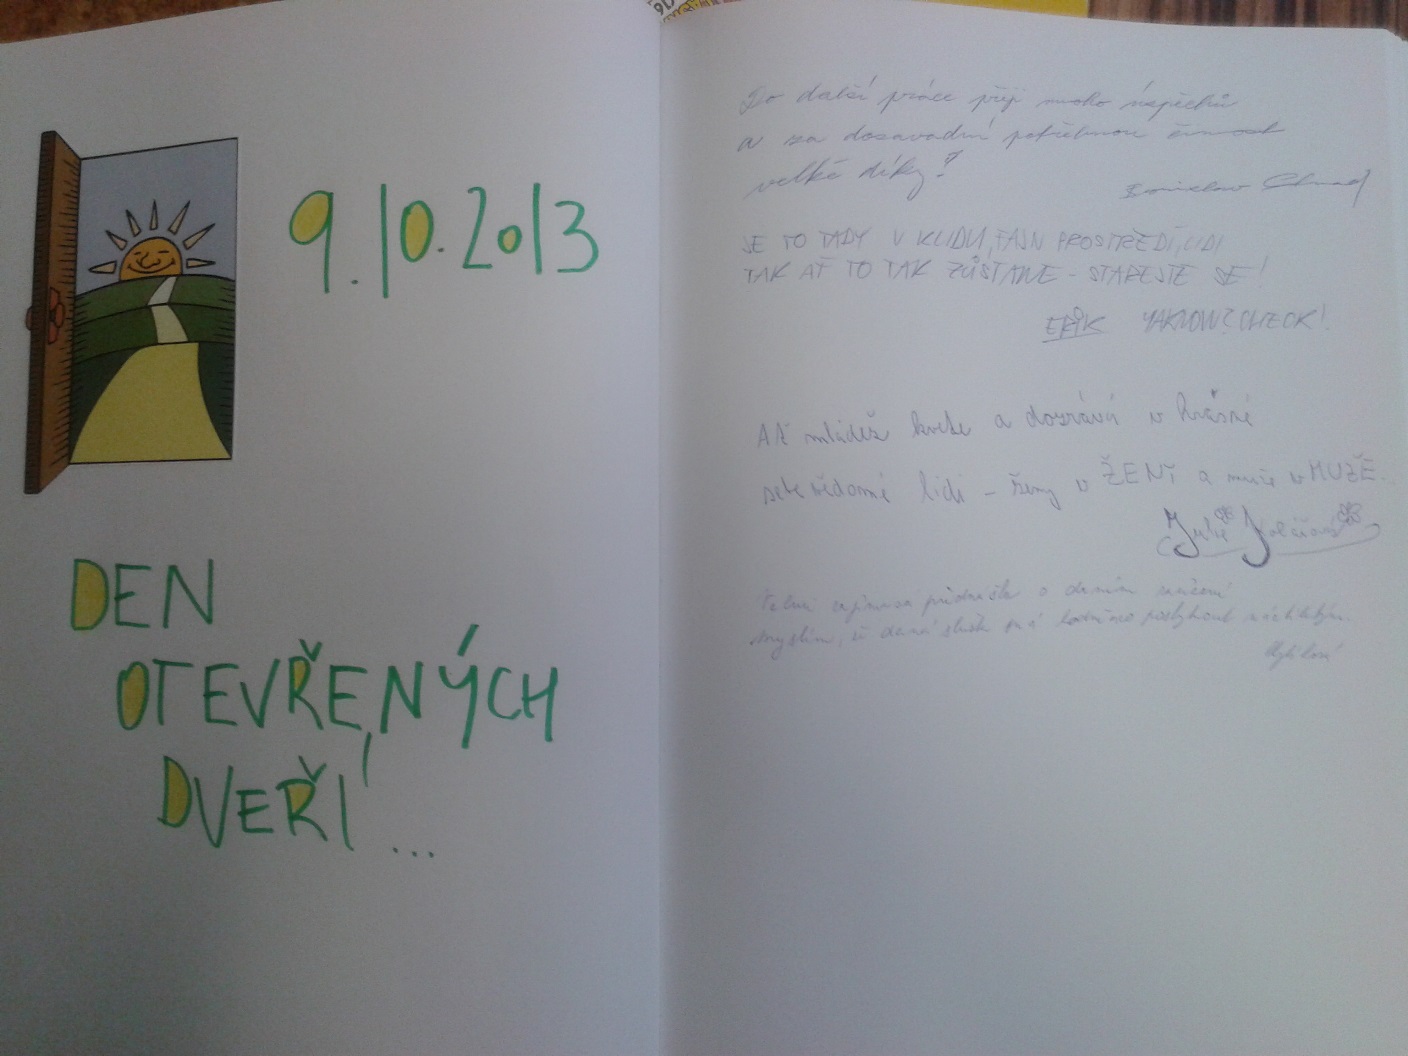 9.10.2013
DEN
OTEVŘENÝCH
DVEŘÍ...
Do další práce přeji mnoho úspěchů
a za dosavadní potřebnou činnost
velké díky!
JE TO TADY V KLIDU, FAJN PROSTŘEDÍ, LIDI
TAK AŤ TO TAK ZŮSTANE - STAREJTE SE!
ERIK YAKNOW? CHECK!
AŤ mládež kvete a dozrává v krásné
sebevědomé lidi - ženy v ŽENY a muže v MUŽE.
Julie
Velmi zajímavá přednáška o daném zařízení
myslím, že daná služba má rodině poskytnout